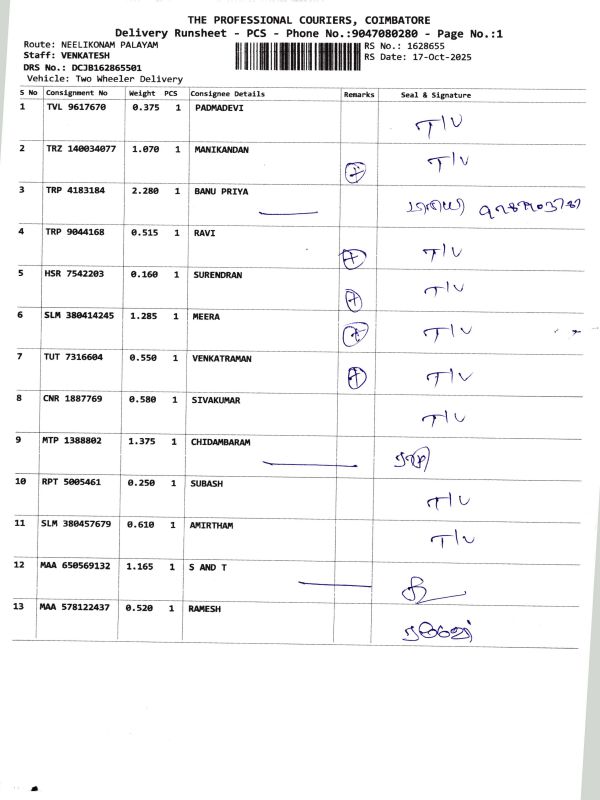 THE PROFESSIONAL COURIERS, COIMBATORE
Delivery Runsheet - PCS - Phone No.:9047080280 - Page No.:1
Route: NEELIKONAM PALAYAM RS No.: 1628655
Staff: VENKATESH RS Date: 17-Oct-2025
DRS No.: DCJB162865501
Vehicle: Two Wheeler Delivery
S No Consignment No Weight PCS Consignee Details Remarks Seal & Signature
1 TVL 9617670 0.375 1 PADMADEVI T/V
2 TRZ 140034077 1.070 1 MANIKANDAN T/V
3 TRP 4183184 2.280 1 BANU PRIYA
4 TRP 9044168 0.515 1 RAVI T/V
5 HSR 7542203 0.160 1 SURENDRAN T/V
6 SLM 380414245 1.285 1 MEERA T/V
7 TUT 7316604 0.550 1 VENKATRAMAN T/V
8 CNR 1887769 0.580 1 SIVAKUMAR T/V
9 MTP 1388802 1.375 1 CHIDAMBARAM
10 RPT 5005461 0.250 1 SUBASH T/V
11 SLM 380457679 0.610 1 AMIRTHAM T/V
12 MAA 650569132 1.165 1 S AND T
13 MAA 578122437 0.520 1 RAMESH